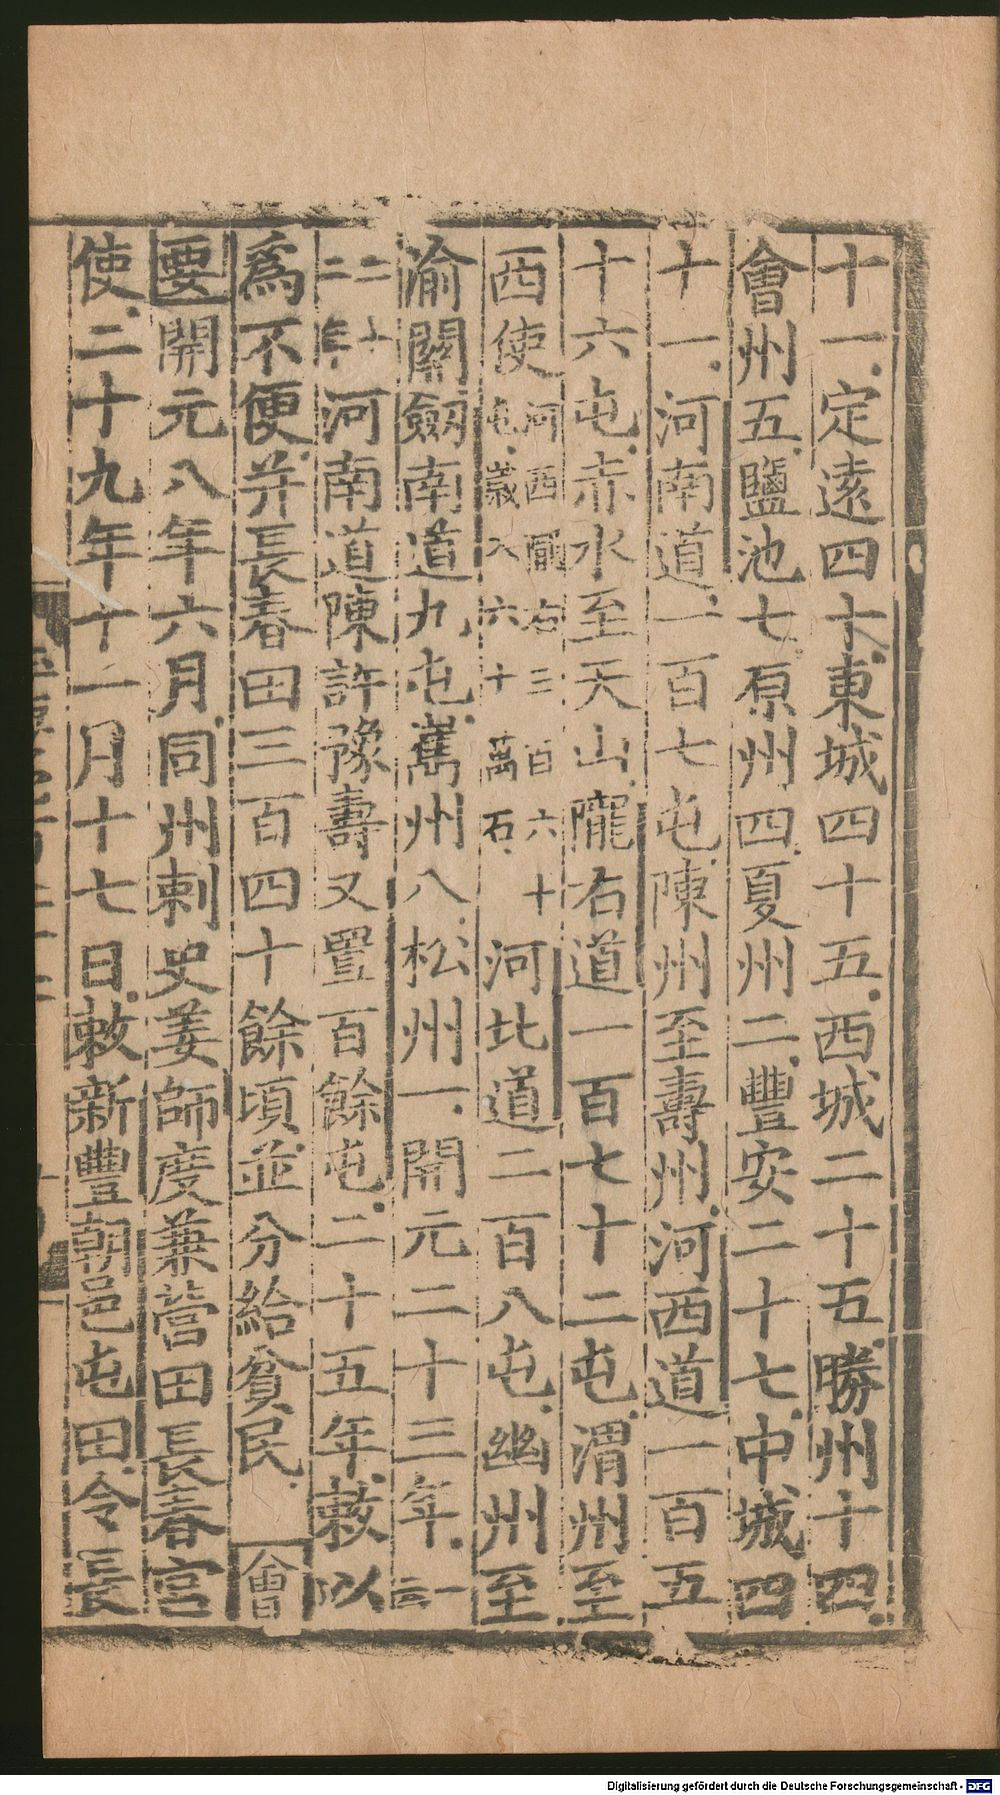 十一定遠四十東城四十五西城二十五勝州十四
會州五鹽池七原州四夏州二豐安二十七中城四
十一河南道一百七屯陳州至壽州河西道一百五
十六屯赤水至天山隴右道一百七十二屯渭州至
西使河西隴右三百六十屯歲入六十萬石河北道二百八屯幽州至
渝關劒南道九屯嶲州八松州一開元二十三年一云
二十二年河南道陳許豫壽又置百餘屯二十五年敕以
爲不便并長春田三百四十餘頃並分給貧民會
要開元八年六月同州刺史姜師度兼營田長春宮
使二十九年十一月十七日敕新豐朝邑屯田令長
Digitalisierung gefördert durch die Deutsche Forschungsgemeinschaft - DFG